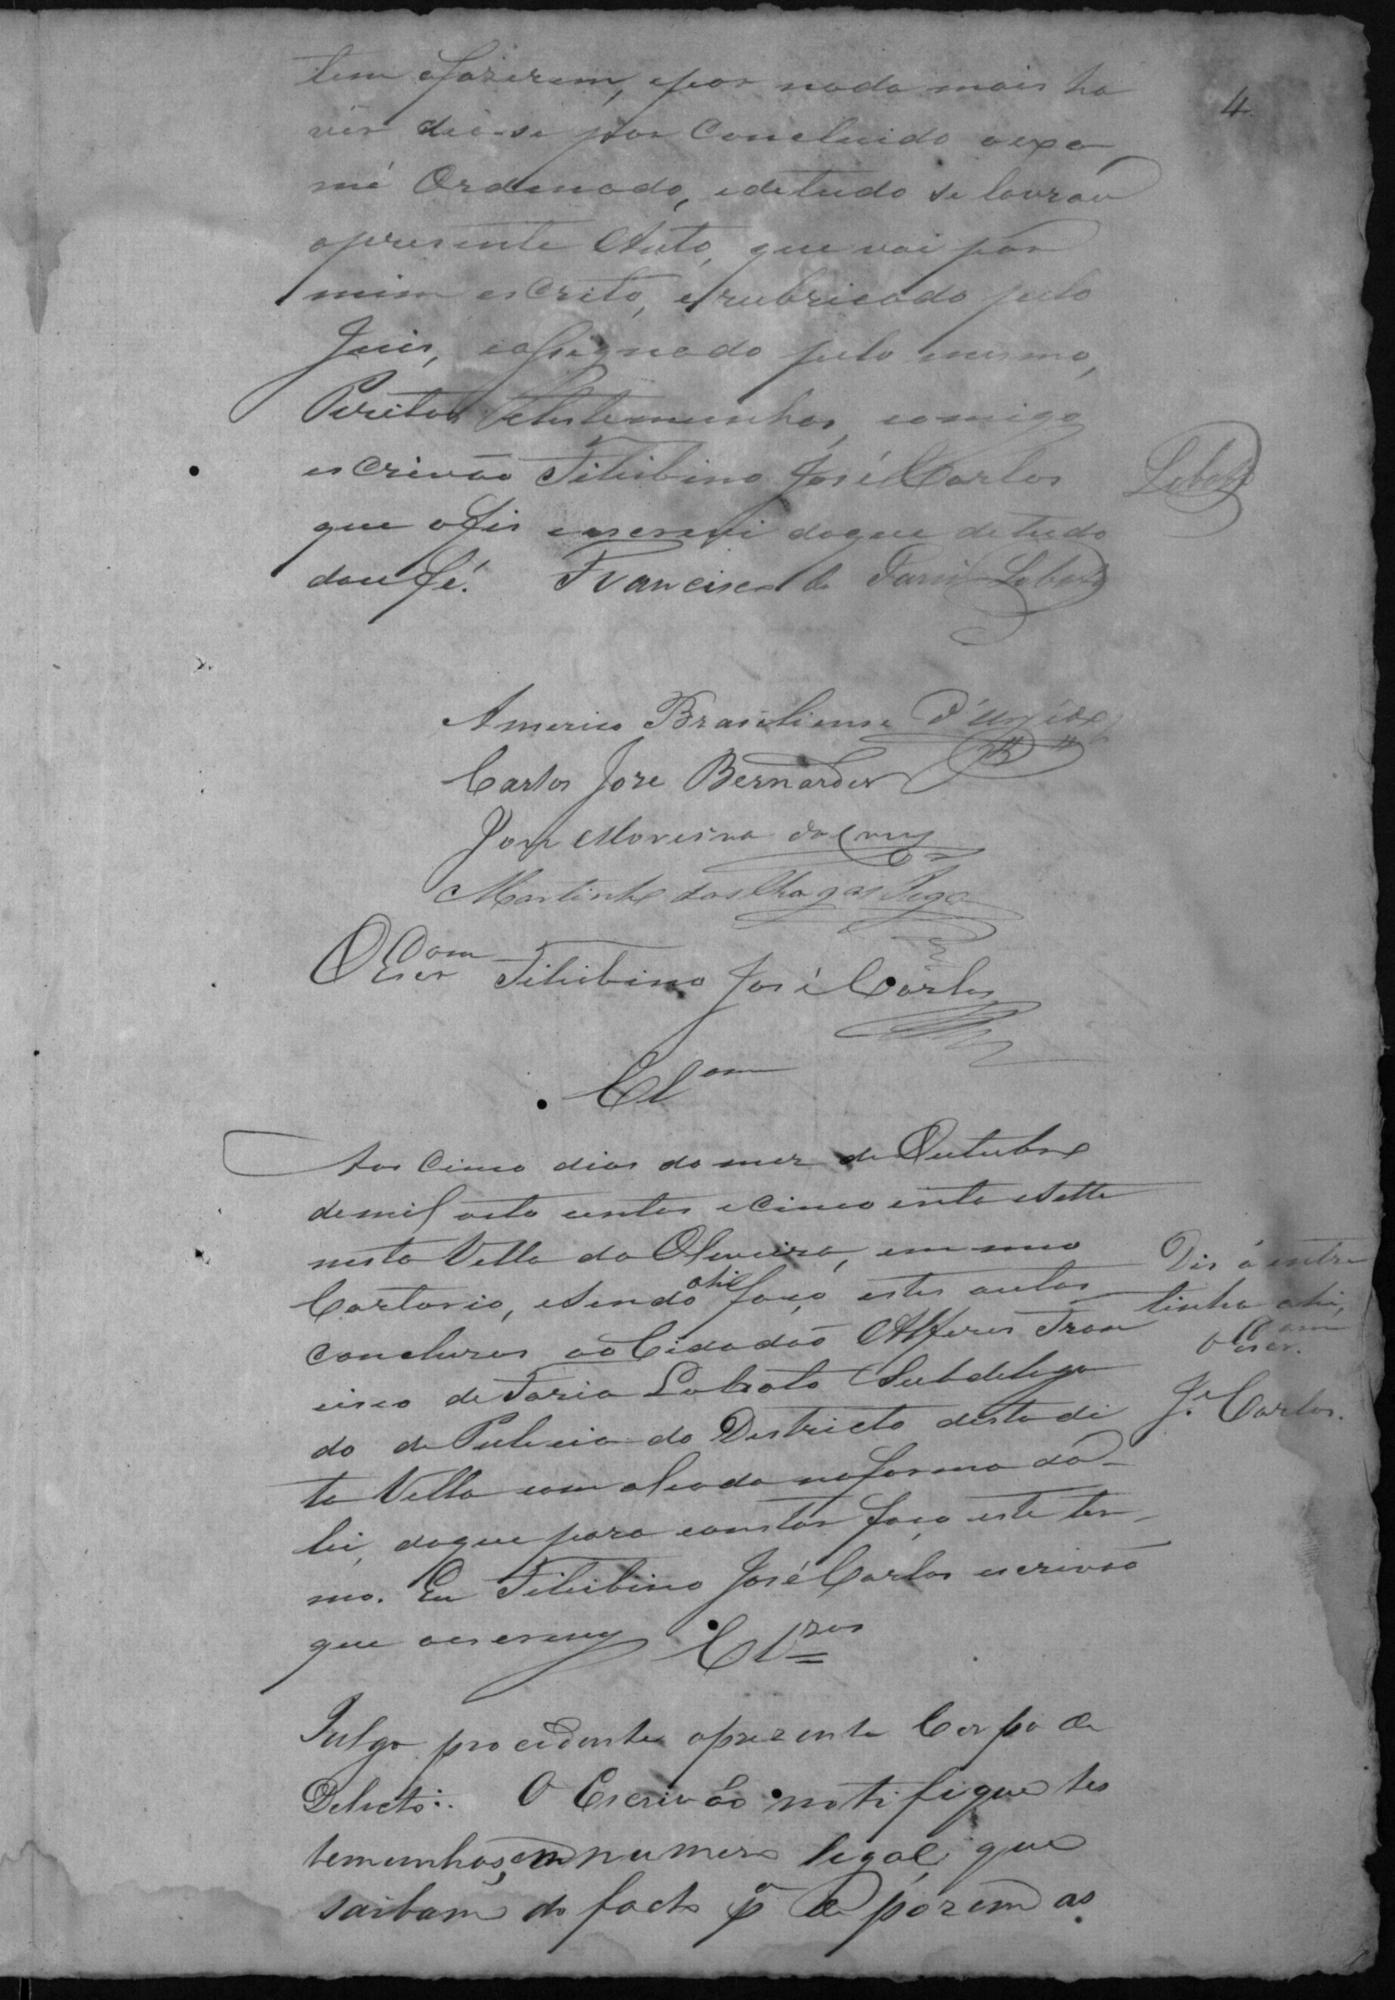 4
tem afazerem, epor nada mais ha
ver deo-se por Concluido oexa
me Ordenado, edetudo se lavrou
opresente Auto, que vai por
mim escrito, erubricado pelo
Juis, eassignado pelo mesmo,
Peritos etestemunhas, comigo
escrivão Filisbino José Carlos
Lobato
que ofis escrevi doque detudo
dou fé. Francisco de Faria Lobato
Americo Brasiliense
Carlos Jose Bernardes
Jose Moreira da Cruz
Martinho das Chagas
O Escr.am Filisbino José Carlos
Cl.am
Aos cinco dias do mez de Outubro
demil oito centos e cinco enta esette
nesta Villa da Oliveira, em meu
Cartorio, esendo ahi faço estes autos
Dis á entre
linha ahi,
conclusos ao Cidadão Alferes Fran
O Escr.am
cisco de Faria Lobato Subdelega
J. Carlos.
do de Policia do Districto desta di
ta Villa com alçada naforma da
lei, doque para constar faço este ter-
mo. Eu Filisbino José Carlos escrivão
que oescrevy Cl.zos
Julgo procedente oprezente Corpo de
Delicto. O Escrivão notifique tes
temunhas, em numero legal, que
saibam do facto p.a deporem as